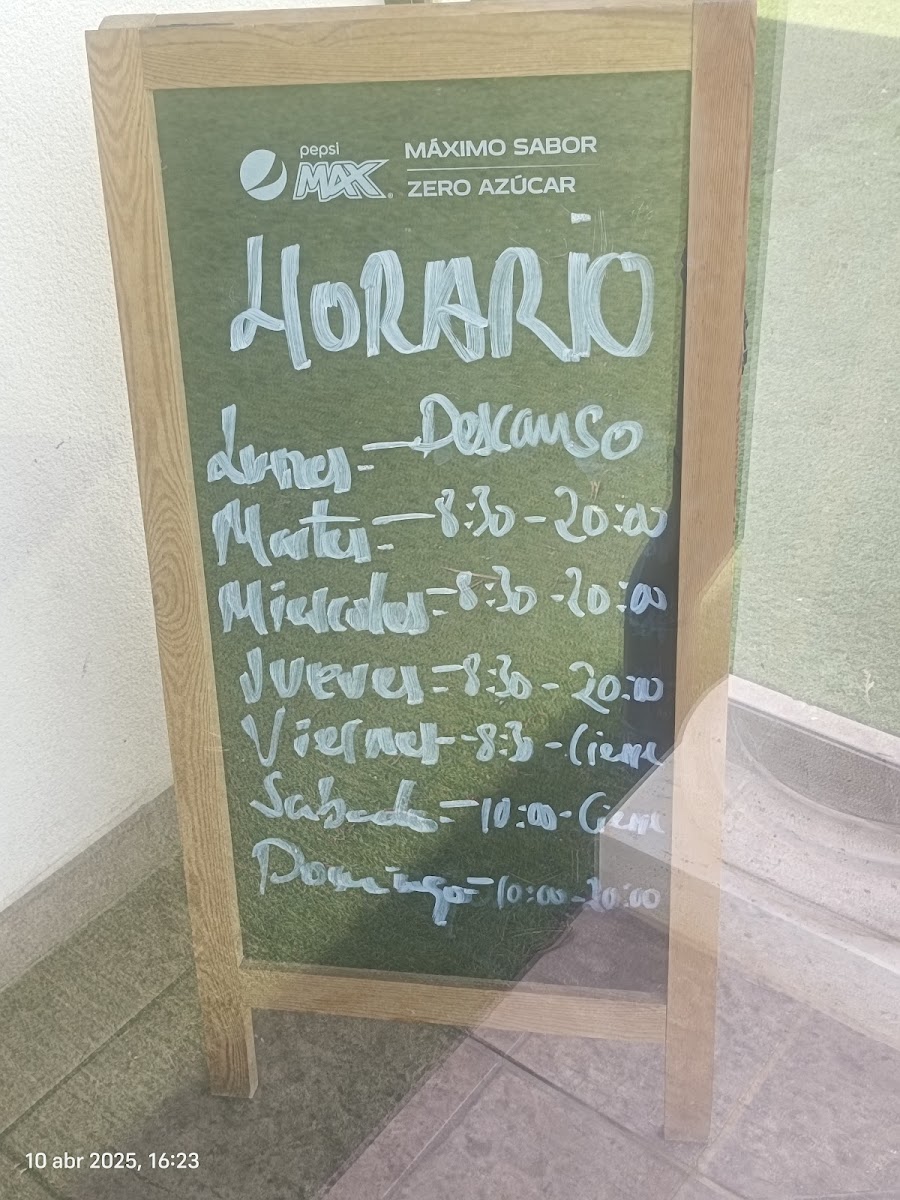 pepsi
MAX
MÁXIMO SABOR
ZERO AZÚCAR
HORARIO
Lunes - Descanso
Martes - 8:30 - 20:00
Miercoles - 8:30 - 20:00
Jueves - 8:30 - 20:00
Viernes - 8:30 - Cierre
Sabado - 10:00 - Cierre
Domingo - 10:00 - 20:00
10 abr 2025, 16:23